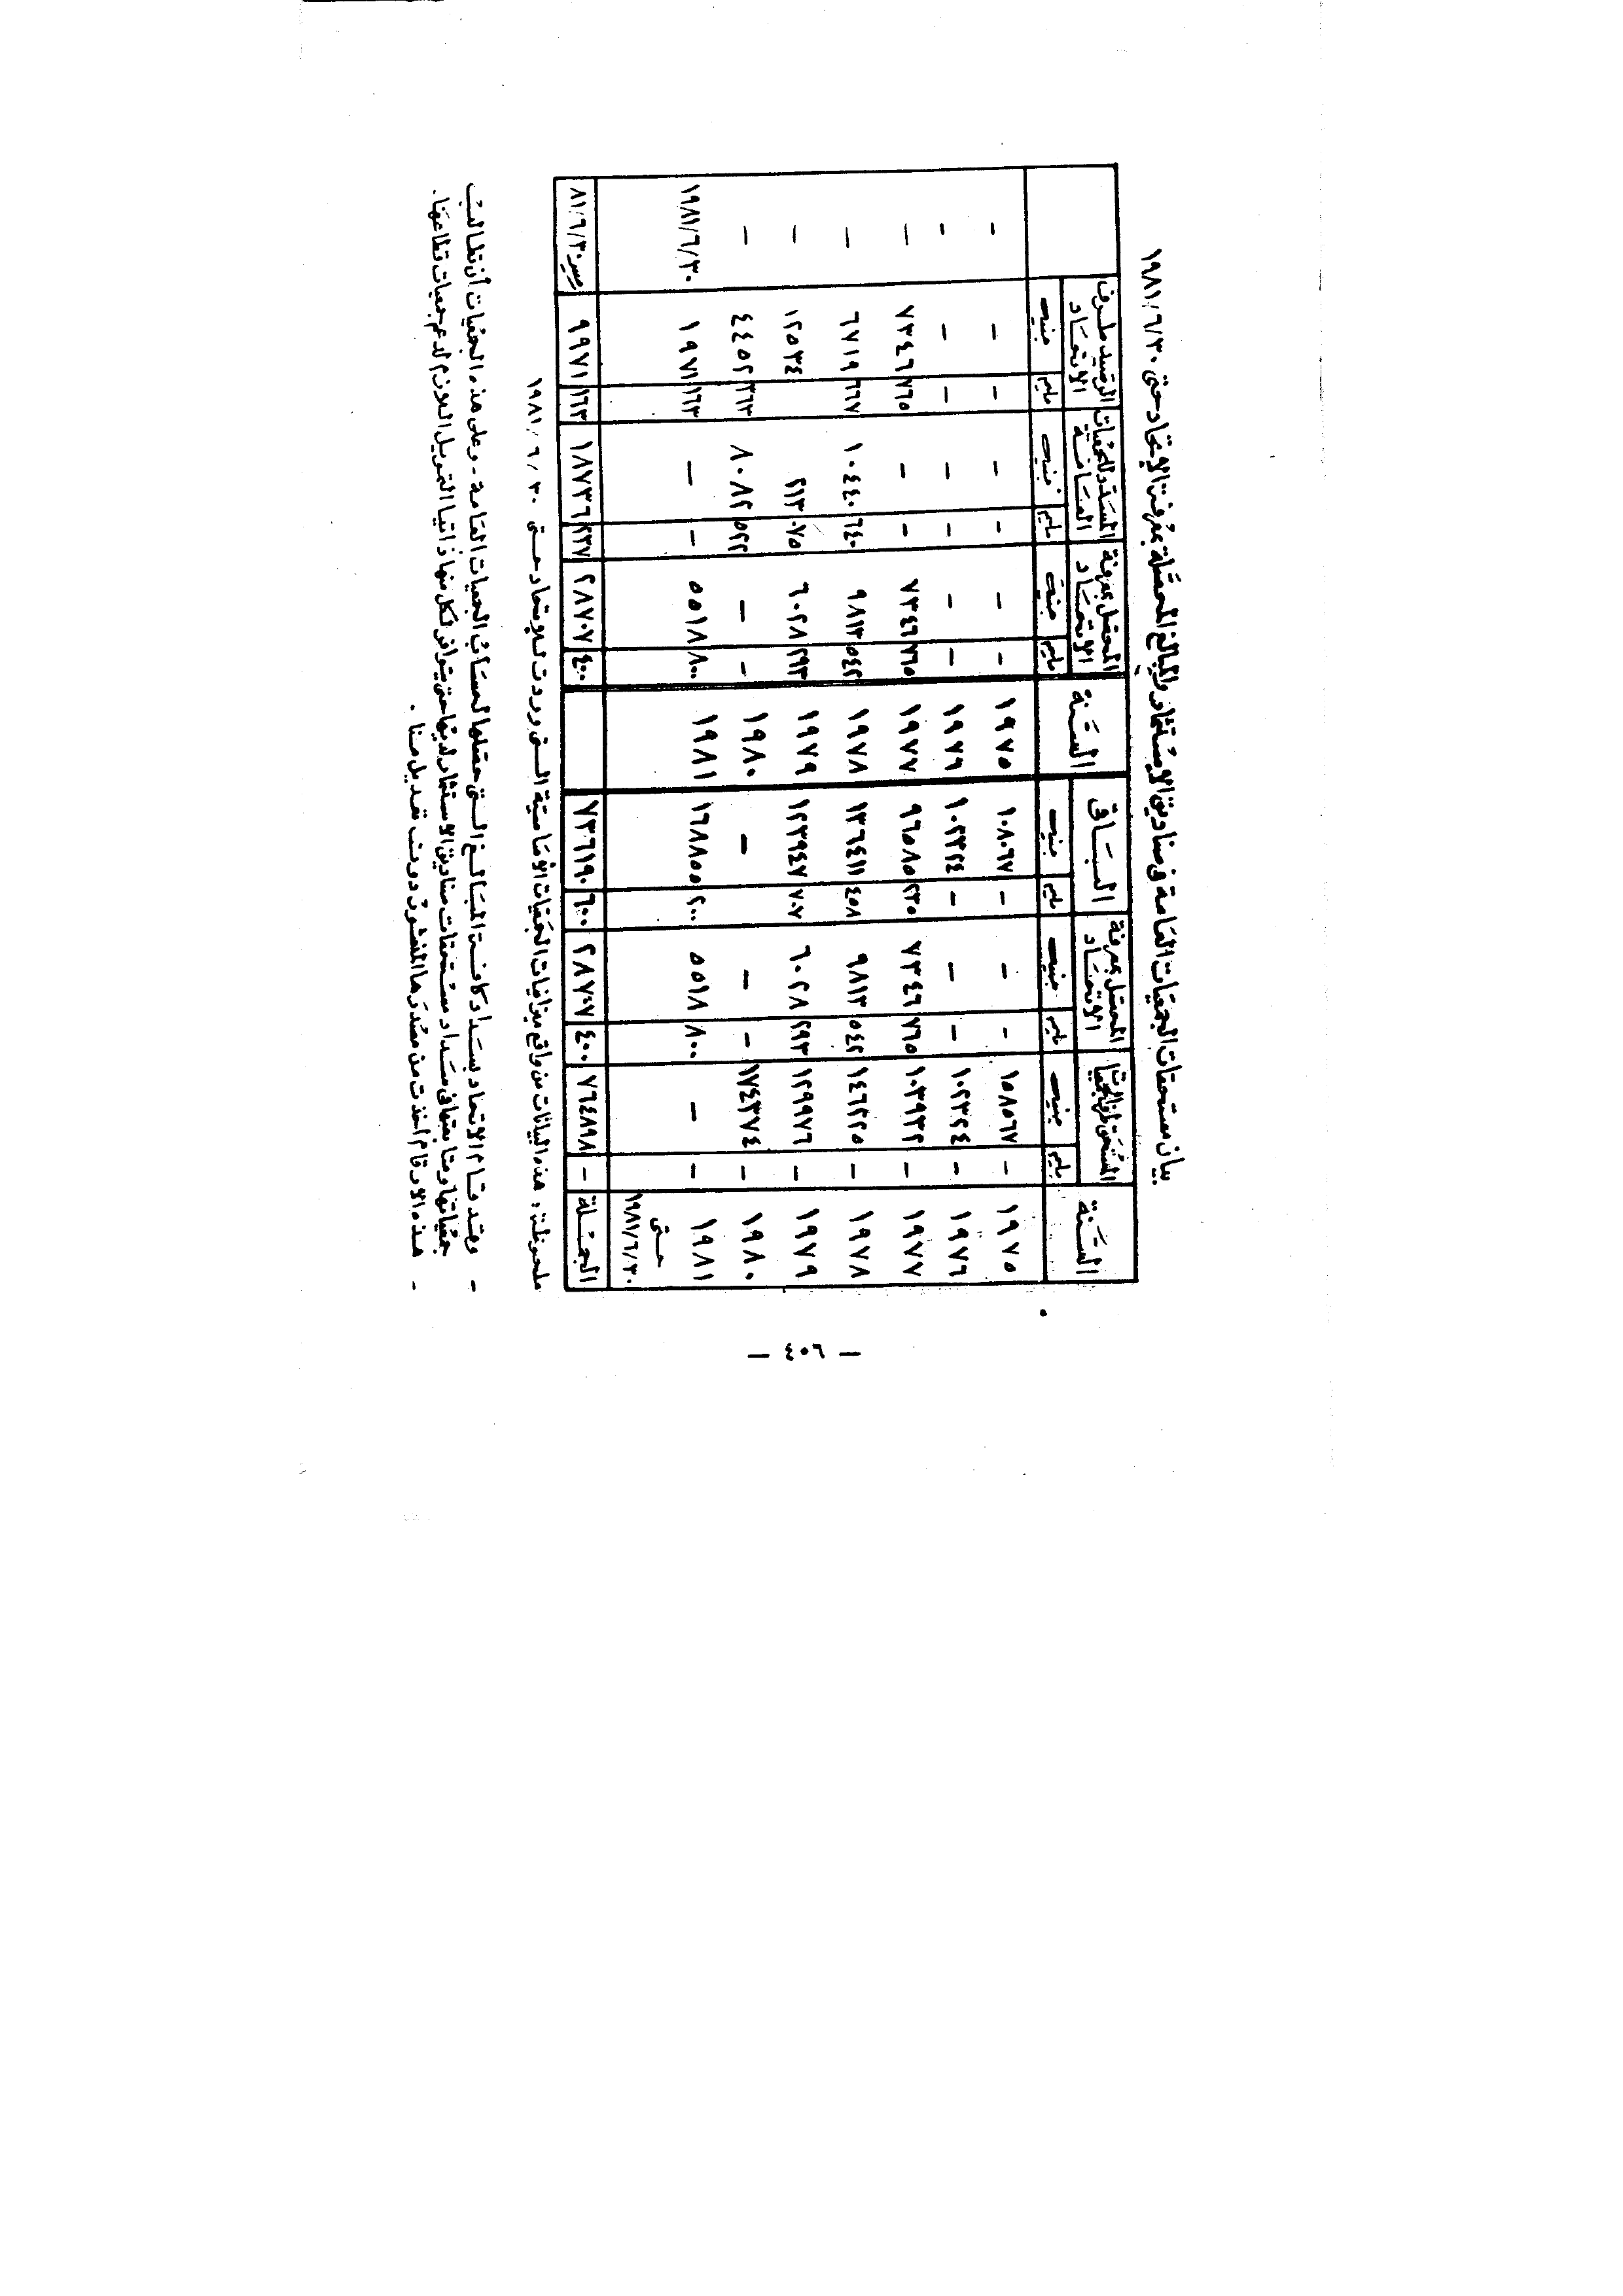 بيان مستحقات الجمعيات العامة فى صناديق الاستثمار والمبالغ المحصلة بمعرفة الاتحاد حتى ١٩٨١/٦/٣٠
السنة | المستحق طرف الجمعيات | المحصل بمعرفة الاتحاد | الباقى | السنة | المحصل بمعرفة الاتحاد | المسدد للجمعيات العامة | الرصيد طرف الاتحاد
مليم جنيه | مليم جنيه | مليم جنيه | مليم جنيه | مليم جنيه | مليم جنيه
١٩٧٥ | - ١٥٨٥٦٧ | - - | - ١٠٨٠٦٧ | ١٩٧٥ | - - | - - | - - | -
١٩٧٦ | - ١٠٢٣٢٤ | - - | - ١٠٢٣٢٤ | ١٩٧٦ | - - | - - | - - | -
١٩٧٧ | - ١٠٣٩٣٢ | ٧٦٥ ٧٣٤٦ | ٢٣٥ ٩٦٥٨٥ | ١٩٧٧ | ٧٦٥ ٧٣٤٦ | - - | ٧٦٥ ٧٣٤٦ | -
١٩٧٨ | - ١٤٦٢٢٥ | ٥٤٢ ٩٨١٣ | ٤٥٨ ١٣٦٤١١ | ١٩٧٨ | ٥٤٢ ٩٨١٣ | ٦٤٠ ١٠٤٤٠ | ٦٦٧ ٦٧١٩ | -
١٩٧٩ | - ١٢٩٩٧٦ | ٢٩٣ ٦٠٢٨ | ٧٠٧ ١٢٣٩٤٧ | ١٩٧٩ | ٢٩٣ ٦٠٢٨ | ٠٧٥ ٢١٣ | ١٢٥٣٤ | -
١٩٨٠ | - ١٧٤٣٧٤ | - - | - | ١٩٨٠ | - - | ٥٢٢ ٨٠٨٢ | ٣٦٣ ٤٤٥٢ | -
١٩٨١ | - - | ٨٠٠ ٥٥١٨ | ٢٠٠ ١٦٨٨٥٥ | ١٩٨١ | ٨٠٠ ٥٥١٨ | - - | ١٦٣ ١٩٧١ | ١٩٨١/٦/٣٠
حتى
١٩٨١/٦/٣٠
الجملة | - ٧٦٤٨٩٨ | ٤٠٠ ٢٨٧٠٧ | ٦٠٠ ٧٣٦١٩٠ | ٤٠٠ ٢٨٧٠٧ | ٢٣٧ ١٨٧٣٦ | ١٦٣ ٩٩٧١ | ٨١/٦/٣٠
ملحوظة : هذه البيانات من واقع ميزانيات الجمعيات الأساسية التى وردت للاتحاد حتى ١٩٨١/٦/٣٠
- وقد قام الاتحاد بسداد كافة المبالغ التى حصلها لحساب الجمعيات العامة - وعلى هذه الجمعيات أن تطالب
جمعياتها ومتابعتها فى سداد مستحقات صناديق الاستثمار لديها حتى يتوافر لكل منها ذاتيا التمويل اللازم لدعم جمعيات قطاعها .
- هذه الارقام أخذت من مصدرها المنشور دون تعديل منا .
— ٤٠٦ —